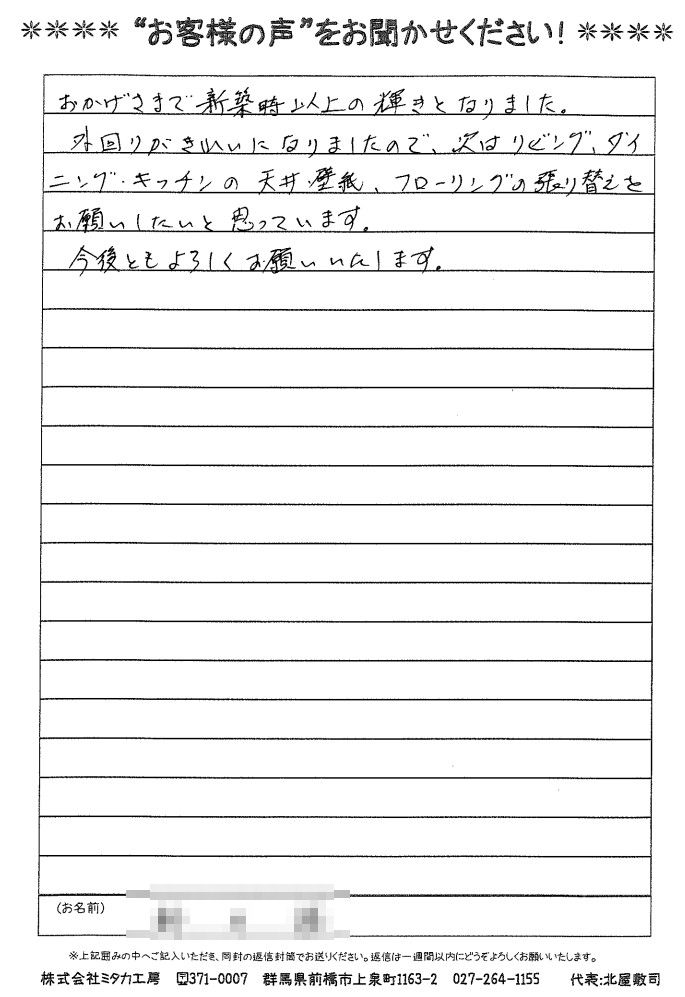 ＊＊＊＊ “お客様の声”をお聞かせください! ＊＊＊＊
おかげさまで新築時以上の輝きとなりました。
外回りがきれいになりましたので、次はリビング、ダイ
ニング・キッチンの天井・壁紙、フローリングの張り替えを
お願いしたいと思っています。
今後ともよろしくお願いいたします。
(お名前)
※上記囲みの中へご記入いただき、同封の返信封筒でお送りください。返信は一週間以内にどうぞよろしくお願いいたします。
株式会社ミタカ工房 〒371-0007 群馬県前橋市上泉町1163-2 027-264-1155 代表:北屋敷司